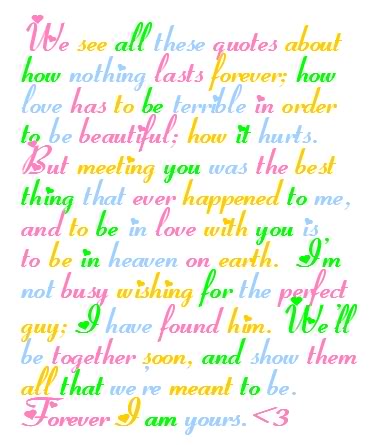 We see all these quotes about
how nothing lasts forever; how
love has to be terrible in order
to be beautiful; how it hurts.
But meeting you was the best
thing that ever happened to me,
and to be in love with you is
to be in heaven on earth. I'm
not busy wishing for the perfect
guy; I have found him. We'll
be together soon, and show them
all that we're meant to be.
Forever I am yours. <3